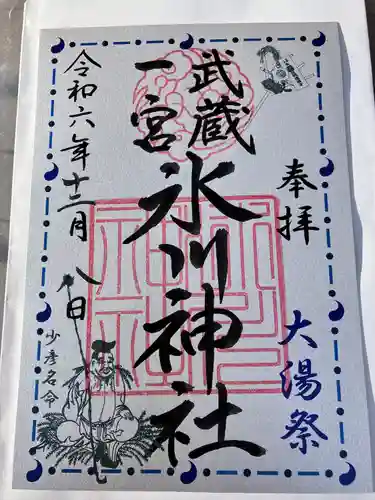 奉拝
大湯祭
武蔵
一宮
氷川神社
令和六年十二月八日
少彦名命